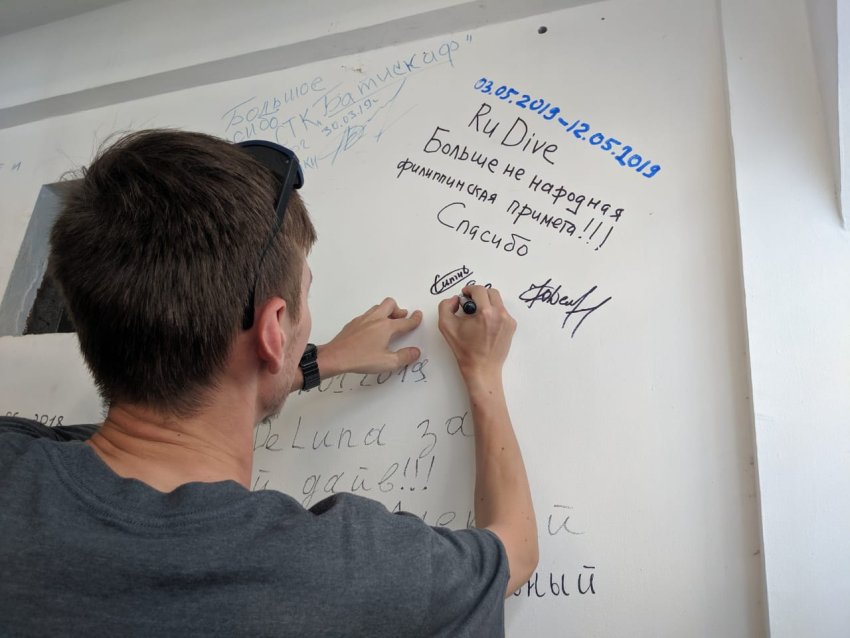 Большое
СТК "Батискаф"
30.03.19г.
03.05.2019-12.05.2019
Ru Dive
Больше не народная
филиппинская примета!!!
Спасибо
01.2019
DeLuna за
й дайв!!!
й
ный
2018